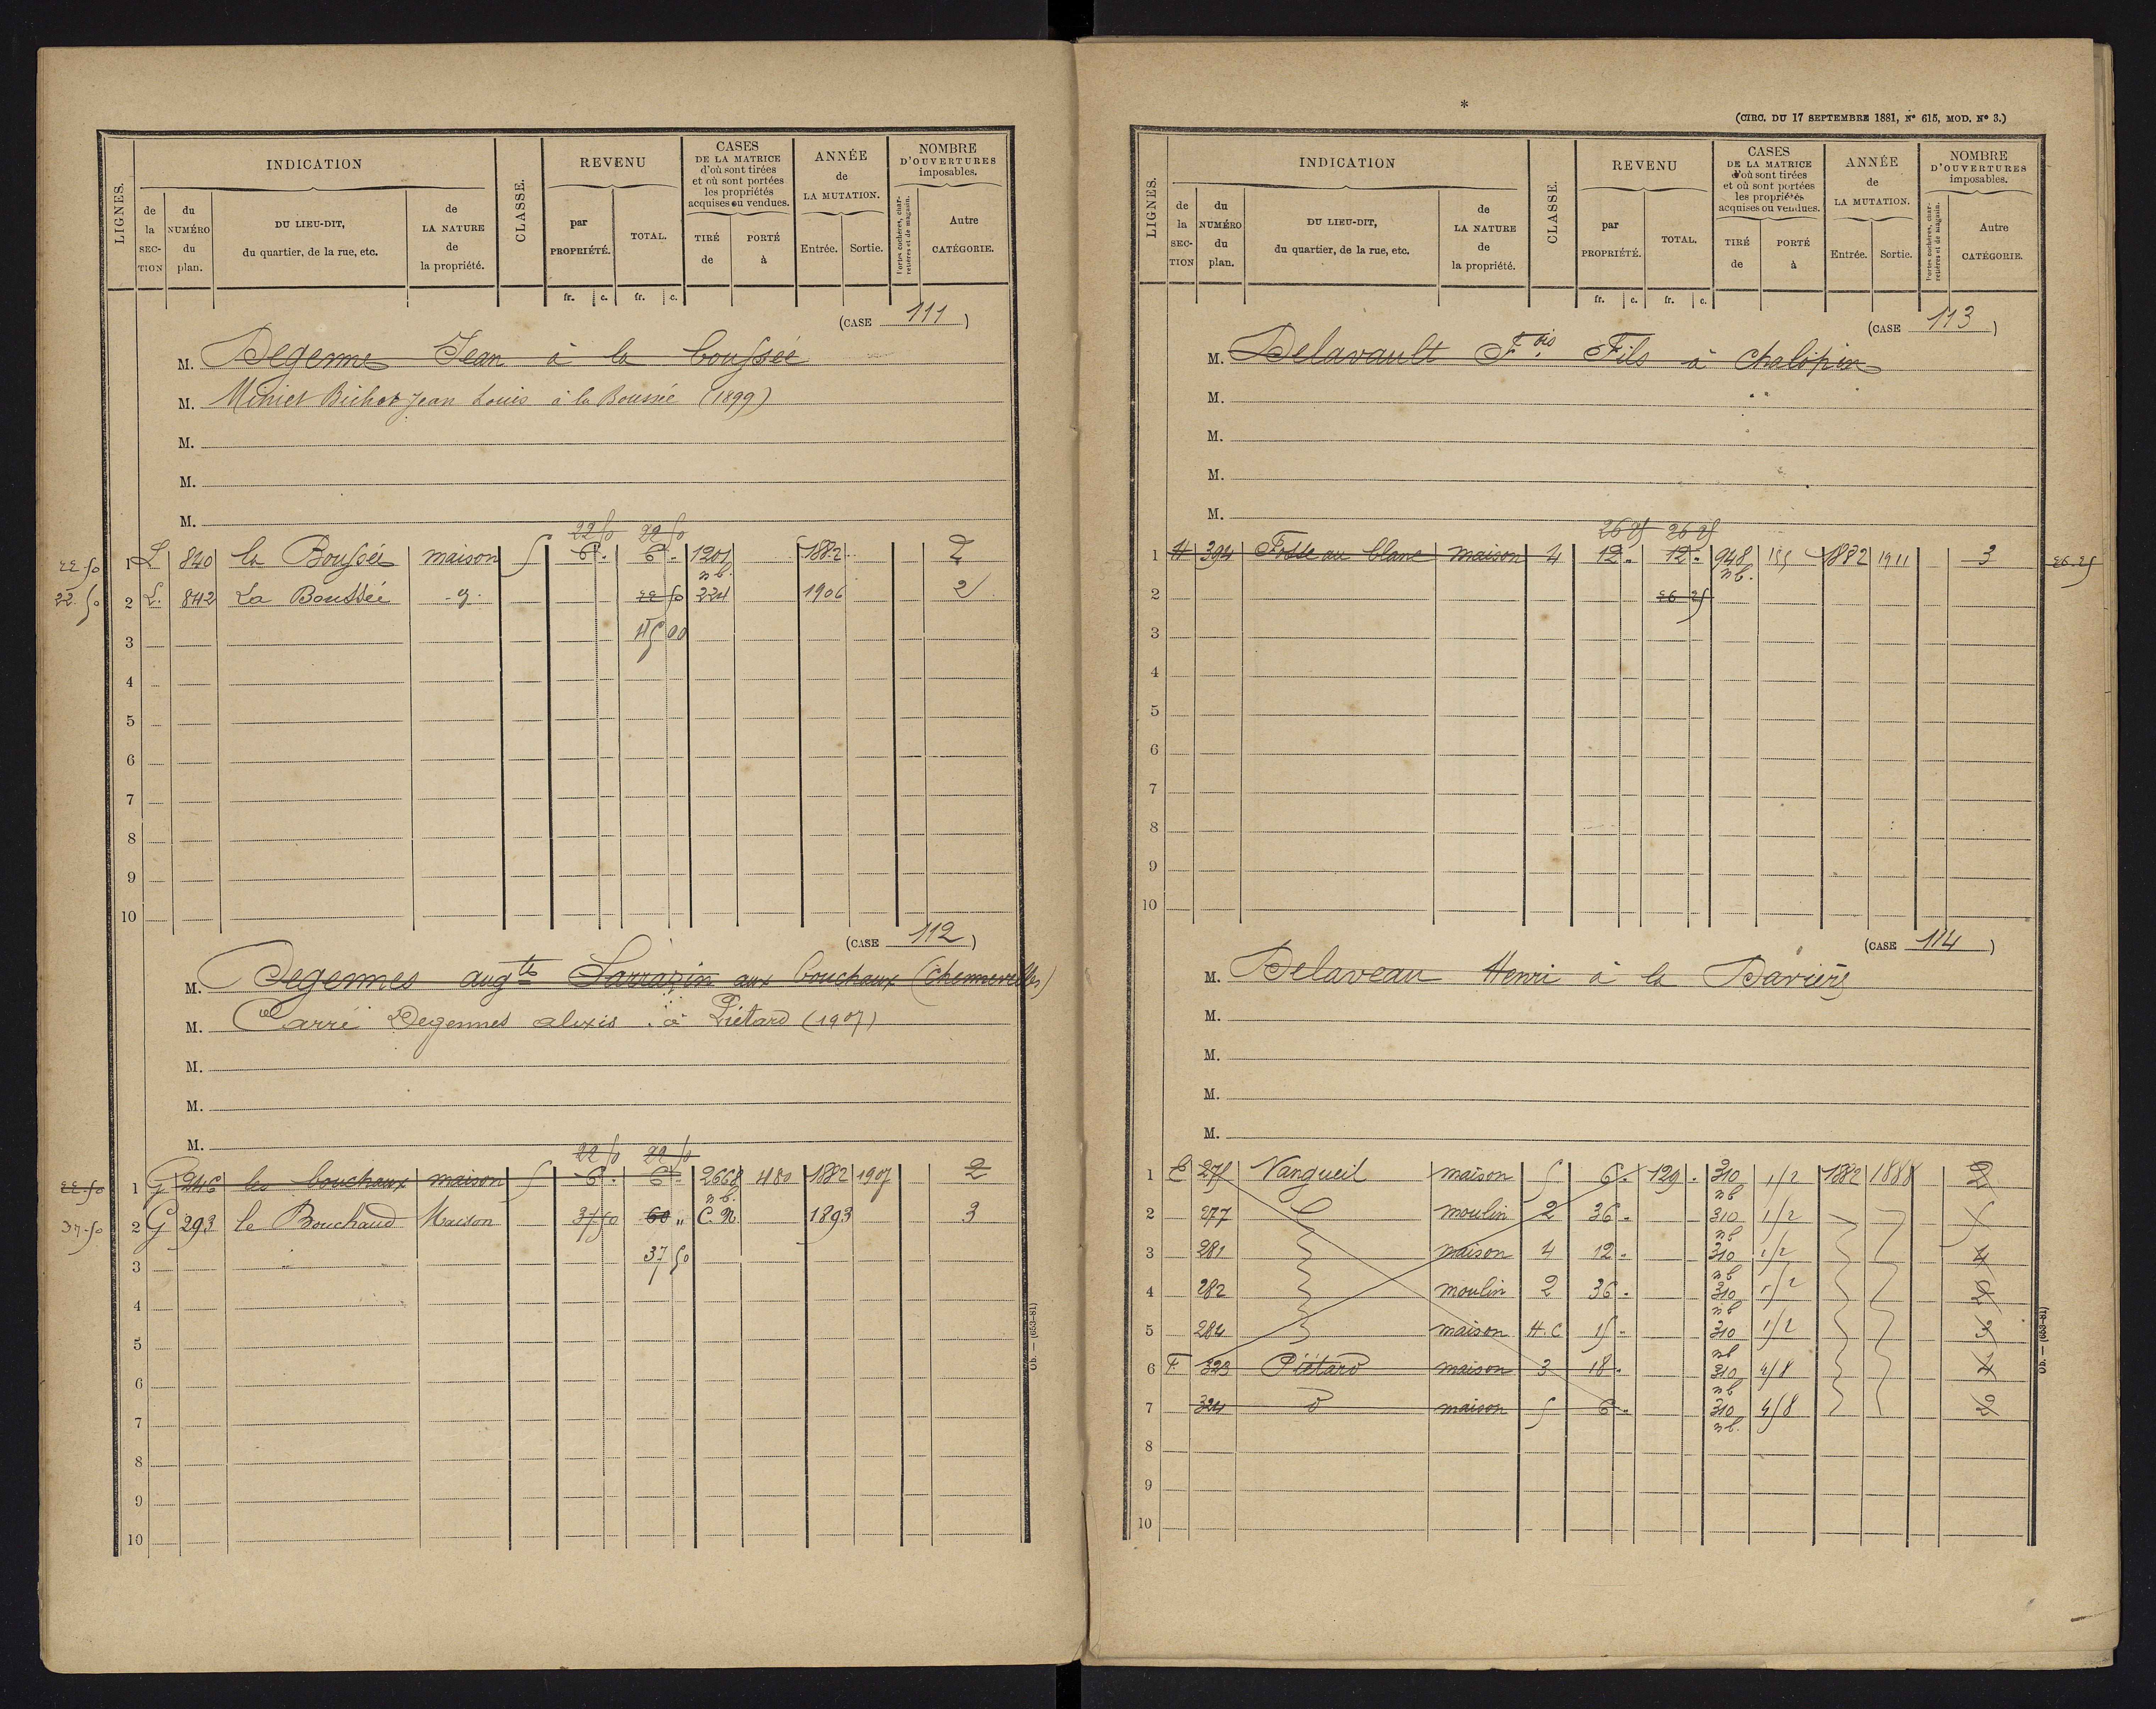 INDICATION
REVENU
CASES
DE LA MATRICE
d'où sont tirées
et où sont portées
les propriétés
acquises ou vendues.
ANNÉE
de
LA MUTATION.
NOMBRE
D'OUVERTURES
imposables.
LIGNES.
de la SECTION
du NUMÉRO du plan.
DU LIEU-DIT,
du quartier, de la rue, etc.
de LA NATURE de la propriété.
CLASSE.
par PROPRIÉTÉ.
TOTAL.
TIRÉ de
PORTÉ à
Entrée.
Sortie.
Portes cochères, charretières et de magasin.
Autre CATÉGORIE.
fr. c. fr. c.
(CASE 111)
M. Degenne Jean à la Boussée
M. Miniet Bichot Jean Louis à la Boussée (1899)
M.
M.
M.
22 50 22 50
22 50 1 L 840 la Boussée maison 5 6 . 6 . 1201 1882 2
n b.
22. 50 2 L. 842 La Boussée - 9 . 22 50 224 1906 2
3 45 00
4
5
6
7
8
9
10
(CASE 112)
M. Degennes augte Sarrazin aux bouchaux (Chennevelles)
M. Carré Degennes alexis . à Piétard (1907)
M.
M.
M.
22 50 22 50
22 50 1 G 246 les bouchaux maison 5 6 . 6 . 2668 480 1882 1907 2
n b.
37.50 2 G 293 le Bouchaud Maison 37 50 60 " C. N. 1893 3
3 37 50
4
5
6
7
8
9
10
Ob. — (653-81)
*
(CIRC. DU 17 SEPTEMBRE 1881, Nº 615, MOD. Nº 3.)
INDICATION
REVENU
CASES
DE LA MATRICE
d'où sont tirées
et où sont portées
les propriétés
acquises ou vendues.
ANNÉE
de
LA MUTATION.
NOMBRE
D'OUVERTURES
imposables.
LIGNES.
de la SECTION
du NUMÉRO du plan.
DU LIEU-DIT,
du quartier, de la rue, etc.
de LA NATURE de la propriété.
CLASSE.
par PROPRIÉTÉ.
TOTAL.
TIRÉ de
PORTÉ à
Entrée.
Sortie.
Portes cochères, charretières et de magasin.
Autre CATÉGORIE.
fr. c. fr. c.
(CASE 113)
M. Delavault Fois Fils à Chalopin
M.
M.
M.
M.
26 25 26 25
1 H 394 Fosse au blanc maison 4 12 . 12 . 948 155 1882 1911 3 26.25
n b.
2 26 25
3
4
5
6
7
8
9
10
(CASE 114)
M. Delaveau Henri à la
M.
M.
M.
M.
1 C 275 Vangueil maison 5 6 . 129 . 310 1/2 1882 1888 2
n b
2 277 moulin 2 36 . 310 1/2 5
n b
3 281 maison 4 12 . 310 1/2 4
n b
4 282 moulin 2 36 . 310 1/2 2
n b
5 284 maison H. C 15 . 310 1/2 3
n b
6 F. 323 Piétard maison 3 18 . 310 4/8 4
n b
7 324 d maison 5 6 . 310 4/8 2
n b.
8
9
10
Ob. — (653-81)